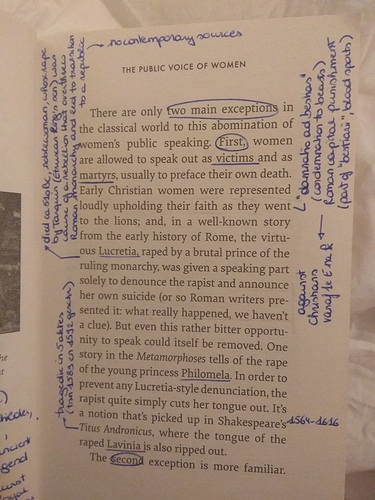 → no contemporary sources
THE PUBLIC VOICE OF WOMEN
There are only two main exceptions in
the classical world to this abomination of
women's public speaking. First, women
are allowed to speak out as victims and as
martyrs, usually to preface their own death.
Early Christian women were represented
loudly upholding their faith as they went
to the lions; and, in a well-known story
from the early history of Rome, the virtu-
ous Lucretia, raped by a brutal prince of the
ruling monarchy, was given a speaking part
solely to denounce the rapist and announce
her own suicide (or so Roman writers pre-
sented it: what really happened, we haven't
a clue). But even this rather bitter opportu-
nity to speak could itself be removed. One
story in the Metamorphoses tells of the rape
of the young princess Philomela. In order to
prevent any Lucretia-style denunciation, the
rapist quite simply cuts her tongue out. It's
a notion that's picked up in Shakespeare's
Titus Andronicus, where the tongue of the
raped Lavinia is also ripped out.
The second exception is more familiar.
1564-1616
"damnatio ad bestias"
(condemnation to beasts)
Roman capital punishment
(part of "bestiarii", blood sports)
against
Christians
vanaf 1e E na C
died ca 510BC, noblewoman, whose rape
by Tarquin (Etruscan king's son) was
cause of a rebellion that overthrew
Roman monarchy and led to transition
to a republic
tragedie in 5 aktes
(tss 1589 en 1592 geschr)